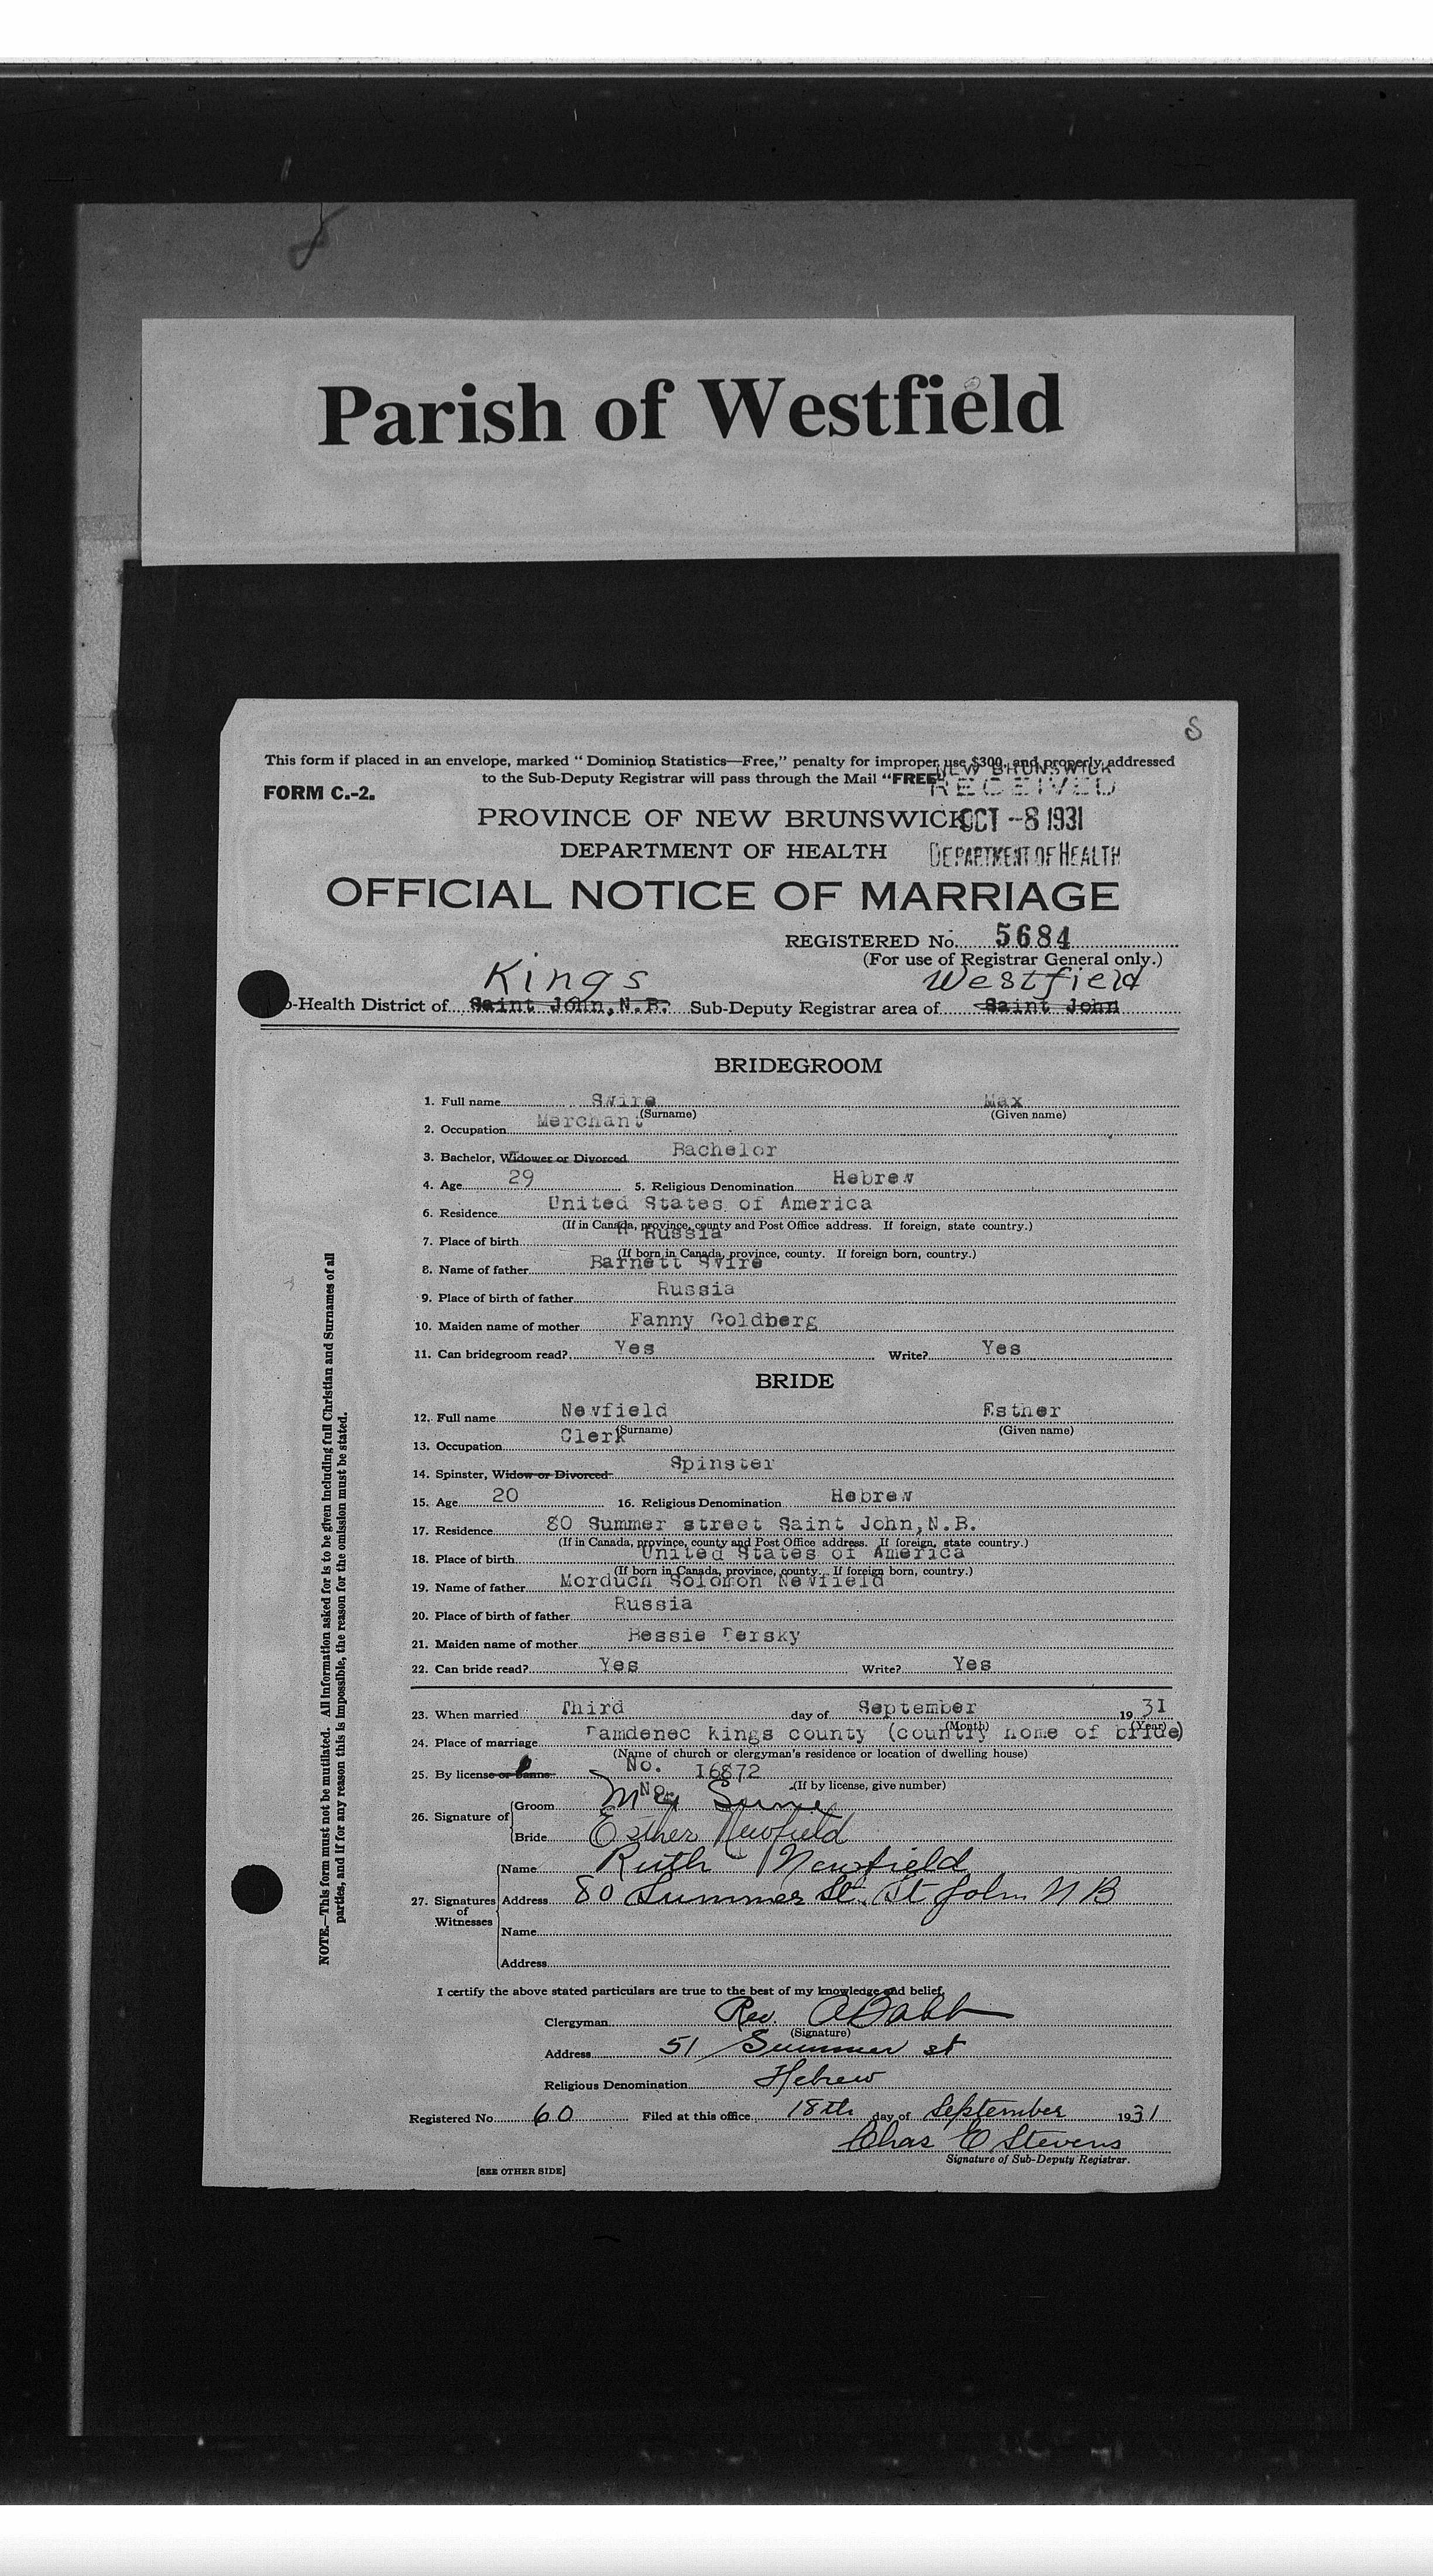 Parish of Westfield
This form if placed in an envelope, marked "Dominion Statistics—Free," penalty for improper use $300, and properly addressed
to the Sub-Deputy Registrar will pass through the Mail "FREE"
NEW BRUNSWICK
RECEIVED
FORM C.-2.
PROVINCE OF NEW BRUNSWICK OCT -8 1931
DEPARTMENT OF HEALTH DEPARTMENT OF HEALTH
OFFICIAL NOTICE OF MARRIAGE
REGISTERED No. 5684
(For use of Registrar General only.)
Kings Westfield
-Health District of Saint John, N.B. Sub-Deputy Registrar area of Saint John
BRIDEGROOM
1. Full name Swire Max
(Surname) (Given name)
2. Occupation Merchant
3. Bachelor, Widower or Divorced Bachelor
4. Age 29 5. Religious Denomination Hebrew
6. Residence United States of America
(If in Canada, province, county and Post Office address. If foreign, state country.)
7. Place of birth Russia
(If born in Canada, province, county. If foreign born, country.)
8. Name of father Barnett Swire
9. Place of birth of father Russia
10. Maiden name of mother Fanny Goldberg
11. Can bridegroom read? Yes Write? Yes
BRIDE
12. Full name Newfield Esther
(Surname) (Given name)
13. Occupation Clerk
14. Spinster, Widow or Divorced Spinster
15. Age 20 16. Religious Denomination Hebrew
17. Residence 80 Summer street Saint John, N.B.
(If in Canada, province, county and Post Office address. If foreign, state country.)
18. Place of birth United States of America
(If born in Canada, province, county. If foreign born, country.)
19. Name of father Morduch Solomon Newfield
20. Place of birth of father Russia
21. Maiden name of mother Bessie Persky
22. Can bride read? Yes Write? Yes
23. When married Third day of September 1931
(Month) (Year)
24. Place of marriage Pamdenec kings county (country home of bride)
(Name of church or clergyman's residence or location of dwelling house)
25. By license or Banns No. 16872
(If by license, give number)
26. Signature of Groom M
No.
Bride Esther Newfield
27. Signatures of Witnesses
Name Ruth Newfield
Address 80 Summer St. St John N B
Name
Address
I certify the above stated particulars are true to the best of my knowledge and belief.
Clergyman Rev. A Babb
(Signature)
Address 51 Summer st
Religious Denomination Hebrew
Registered No. 60 Filed at this office 18th day of September 1931
Chas E Stevens
Signature of Sub-Deputy Registrar.
[SEE OTHER SIDE]
NOTE.—This form must not be mutilated. All information asked for is to be given including full Christian and Surnames of all
parties, and if for any reason this is impossible, the reason for the omission must be stated.